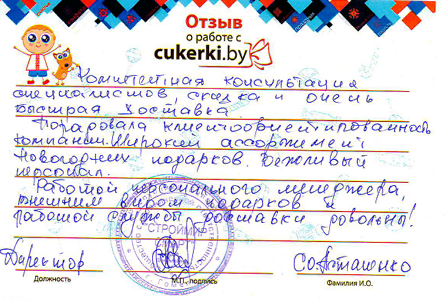 Отзыв
о работе с
cukerki.by
Компетентная консультация
специалистов, скидка и очень
быстрая доставка.
Порадовала клиентоориентированность
компании. Широкий ассортимент
Новогодних подарков. Вежливый
персонал.
Работой персонального менеджера,
внешним видом подарков и
работой службы доставки довольны!
Директор
Должность
СТРОЙМ
М.П., подпись
Фамилия И.О.